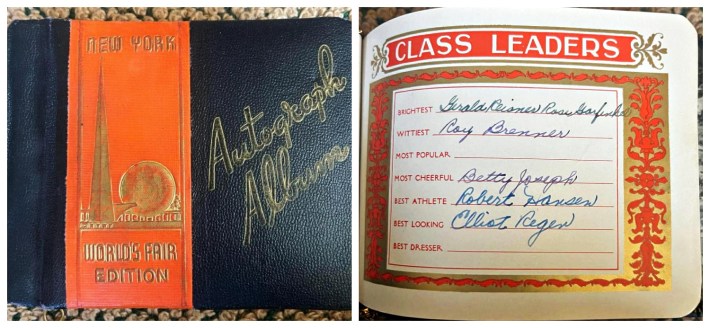 NEW YORK
WORLD'S FAIR
EDITION
Autograph
Album
CLASS LEADERS
BRIGHTEST Gerald Reisner Rosy Garfinkel
WITTIEST Roy Brenner
MOST POPULAR
MOST CHEERFUL Betty Joseph
BEST ATHLETE Robert Hansen
BEST LOOKING Elliot Regen
BEST DRESSER